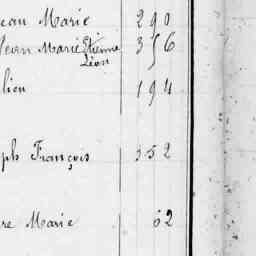 ean Marie 290
Jean Marie Etienne 356
Léon
lien 194
ph François 352
re Marie 62